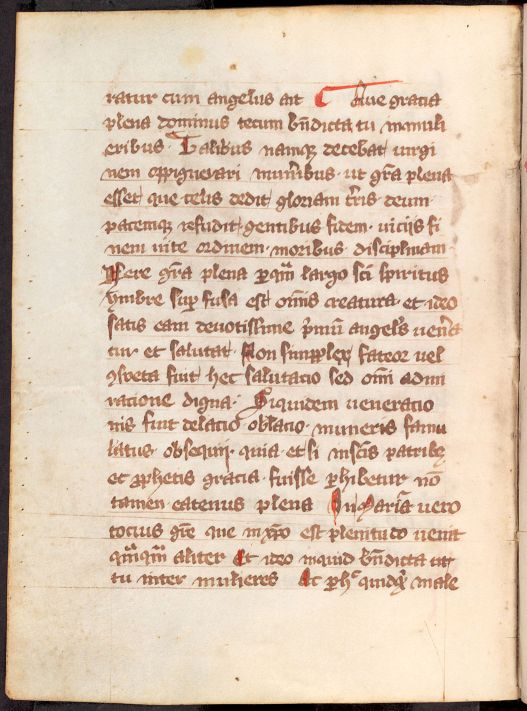 ratur cum angelus ait Aue gracia
plena dominus tecum bn̄dicta tu in muli
eribus · Talibus namqꝫ decebat uirgi
nem oppignerari mun̄ribus · ut gr̄a plena
esset que celis dedit gloriam t̄ris deum
pacemqꝫ refudit gentibus fidem · uicijs fi
nem uite ordinem · moribus disciplinam ·
Vere gr̄a plena ꝑ qm̄ largo sc̄i spiritus
ymbre suꝑ fusa est om̄is creatura · et ideo
satis eam deuotissime p̄mū angel's uen̄a
tur et salutat · Non simplex fateor uel
ꝯsueta fuit hec salutacio sed om̄i admi
racione digna · Siquidem ueneracio
nis fuit delacio oblacio · muneris famu
latus · obsequij · quia · et si in sc̄is patribꝫ
et ꝓphetis gracia · fuisse ꝑhibetur nō
tamen eatenus plena In Mariā uero
tocius gr̄e que in xp̄o est plenitudo uenit
qm̄qm̄ aliter Et ideo inquid bn̄dicta
tu inter mulieres Ac male